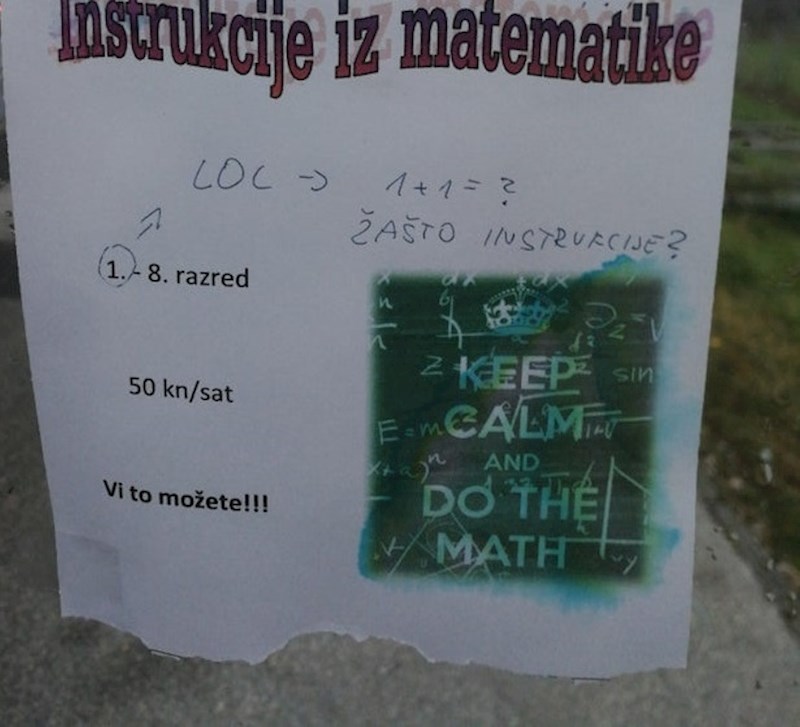 Instrukcije iz matematike
LOL → 1+1=?
ŽAŠTO INSTRUKCIJE?
1. - 8. razred
50 kn/sat
Vi to možete!!!
KEEP
CALM
AND
DO THE
MATH